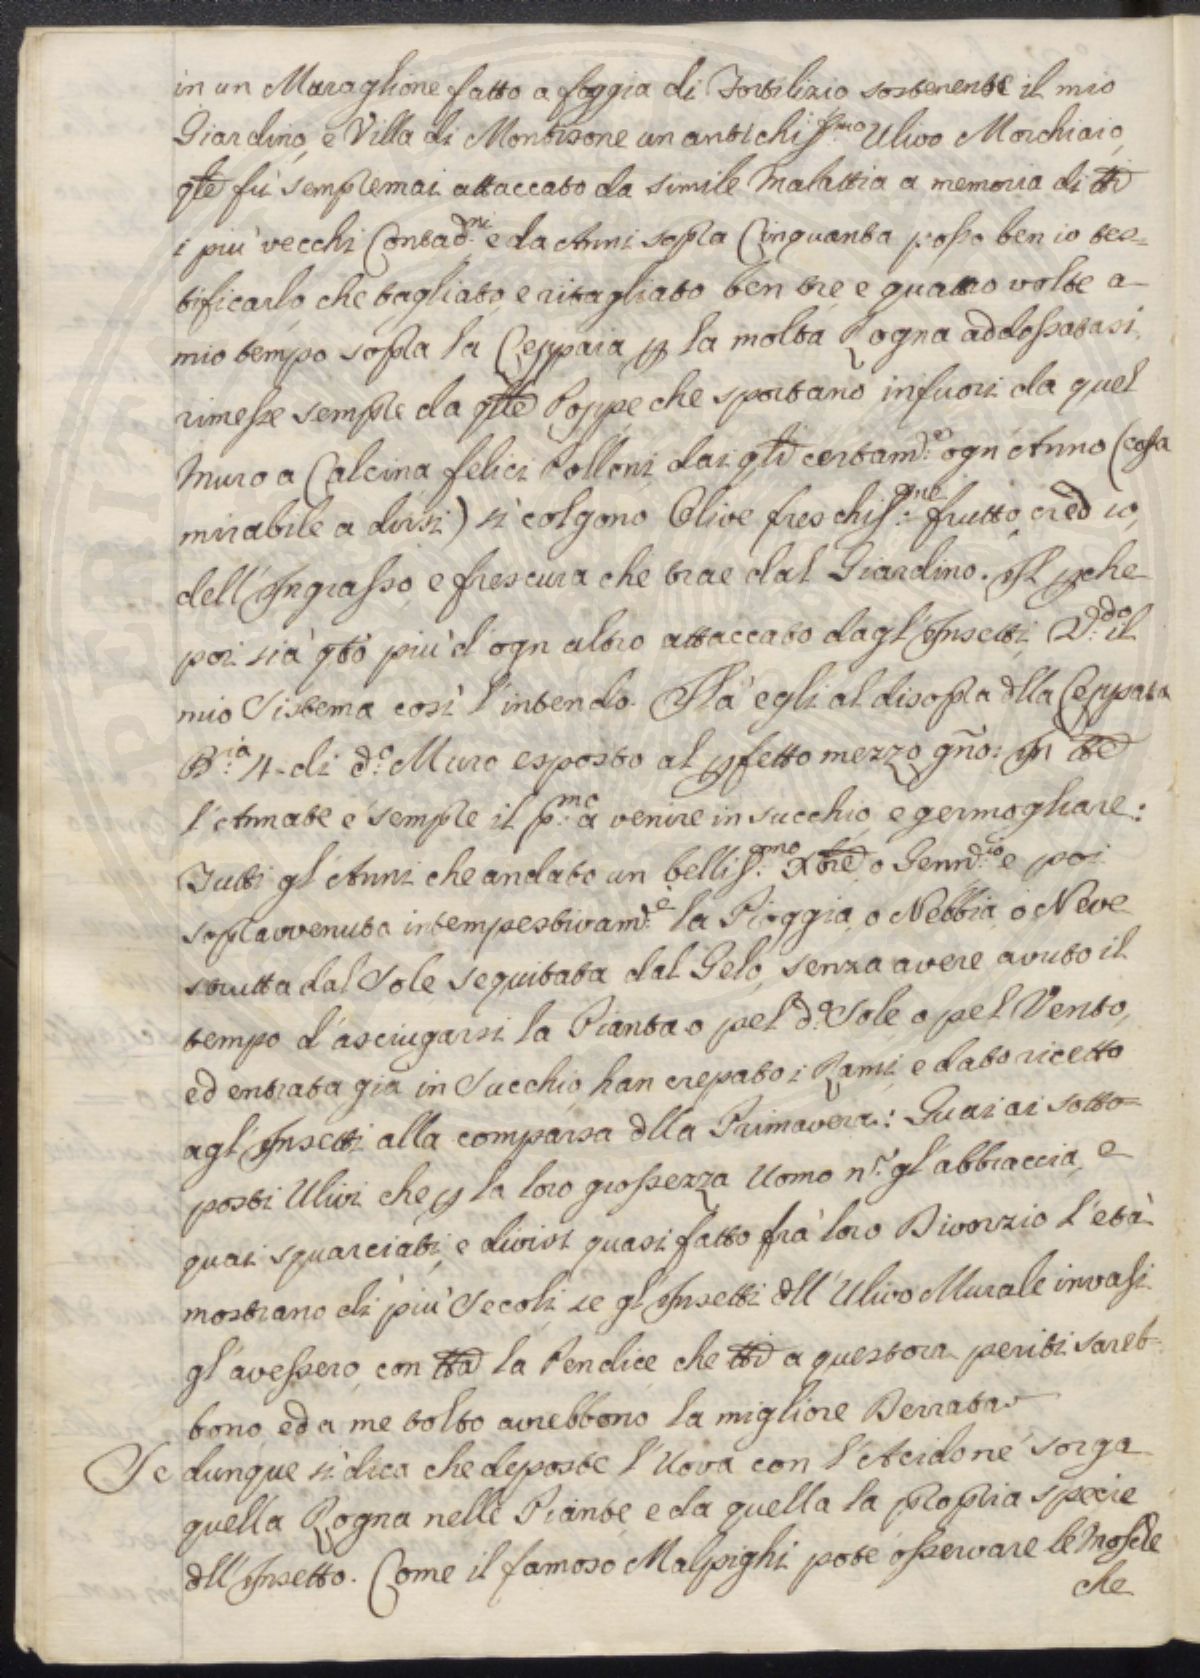 in un Muraglione fatto a foggia di Fortilizio sostenente il mio
Giardino, e Villa di Montisone un antichiss.mo Ulivo Morchiaio,
qle fù sempremai attaccato da simile Malattia a memoria di tti
i più vecchi Contad.ni e da Anni sopra Cinquanta posso ben io tes=
tificarlo che tagliato, e ritagliato ben tre e quattro volte a
mio tempo sopra la Ceppaia p la molta Rogna addossatasi,
rimesse sempre da qlle Poppe che sportano infuori da quel
Muro a Calcina felici Polloni, dai qli certam.e ogn'Anno (cosa
mirabile a dirsi) si colgono Olive freschiss.me frutto, cred'io,
dell'Ingrasso, e frescura che trae dal Giardino. Il pche
poi sia qto più d'ogn altro attaccato dagl'Insetti, S.do il
mio Sistema così l'intendo. Stà egli al disopra dlla Ceppaia
B.ia 4 di d.o Muro esposto al pfetto mezzo gño: In tte
l'Annate è sempre il p.mo a venire in succhio, e germogliare:
Tutti gl'Anni che andato un belliss.mo Xbre, o Genn.io e poi
sopravvenuta intempestivam.e la Pioggia, o Nebbia, o Neve
strutta dal Sole seguitata dal Gelo, senza avere avuto il
tempo d'asciugarsi la Pianta o pel d.o Sole, o pel Vento,
ed entrata già in Succhio, han crepato i Rami, e dato ricetto
agl'Insetti alla comparsa dlla Primavera: Guai ai sotto=
posti Ulivi che p la loro grossezza Uomo n. gl'abbraccia, e
quai squarciati, e divisi quasi fatto frà loro Divorzio l'età
mostrano di più Secoli, se gl'Insetti dll'Ulivo Murale invasi
gl'avessero, con tta la Pendice che tti a quest'ora periti sareb=
bono, ed a me tolto avrebbono la migliore Derrata.
Se dunque si dica che deposte l'Uova con l'Acido nè sorga
quella Rogna nelle Piante, e da quella la propria specie
dll'Insetto. Come il famoso Malpighi potè osservare le Mosche
che